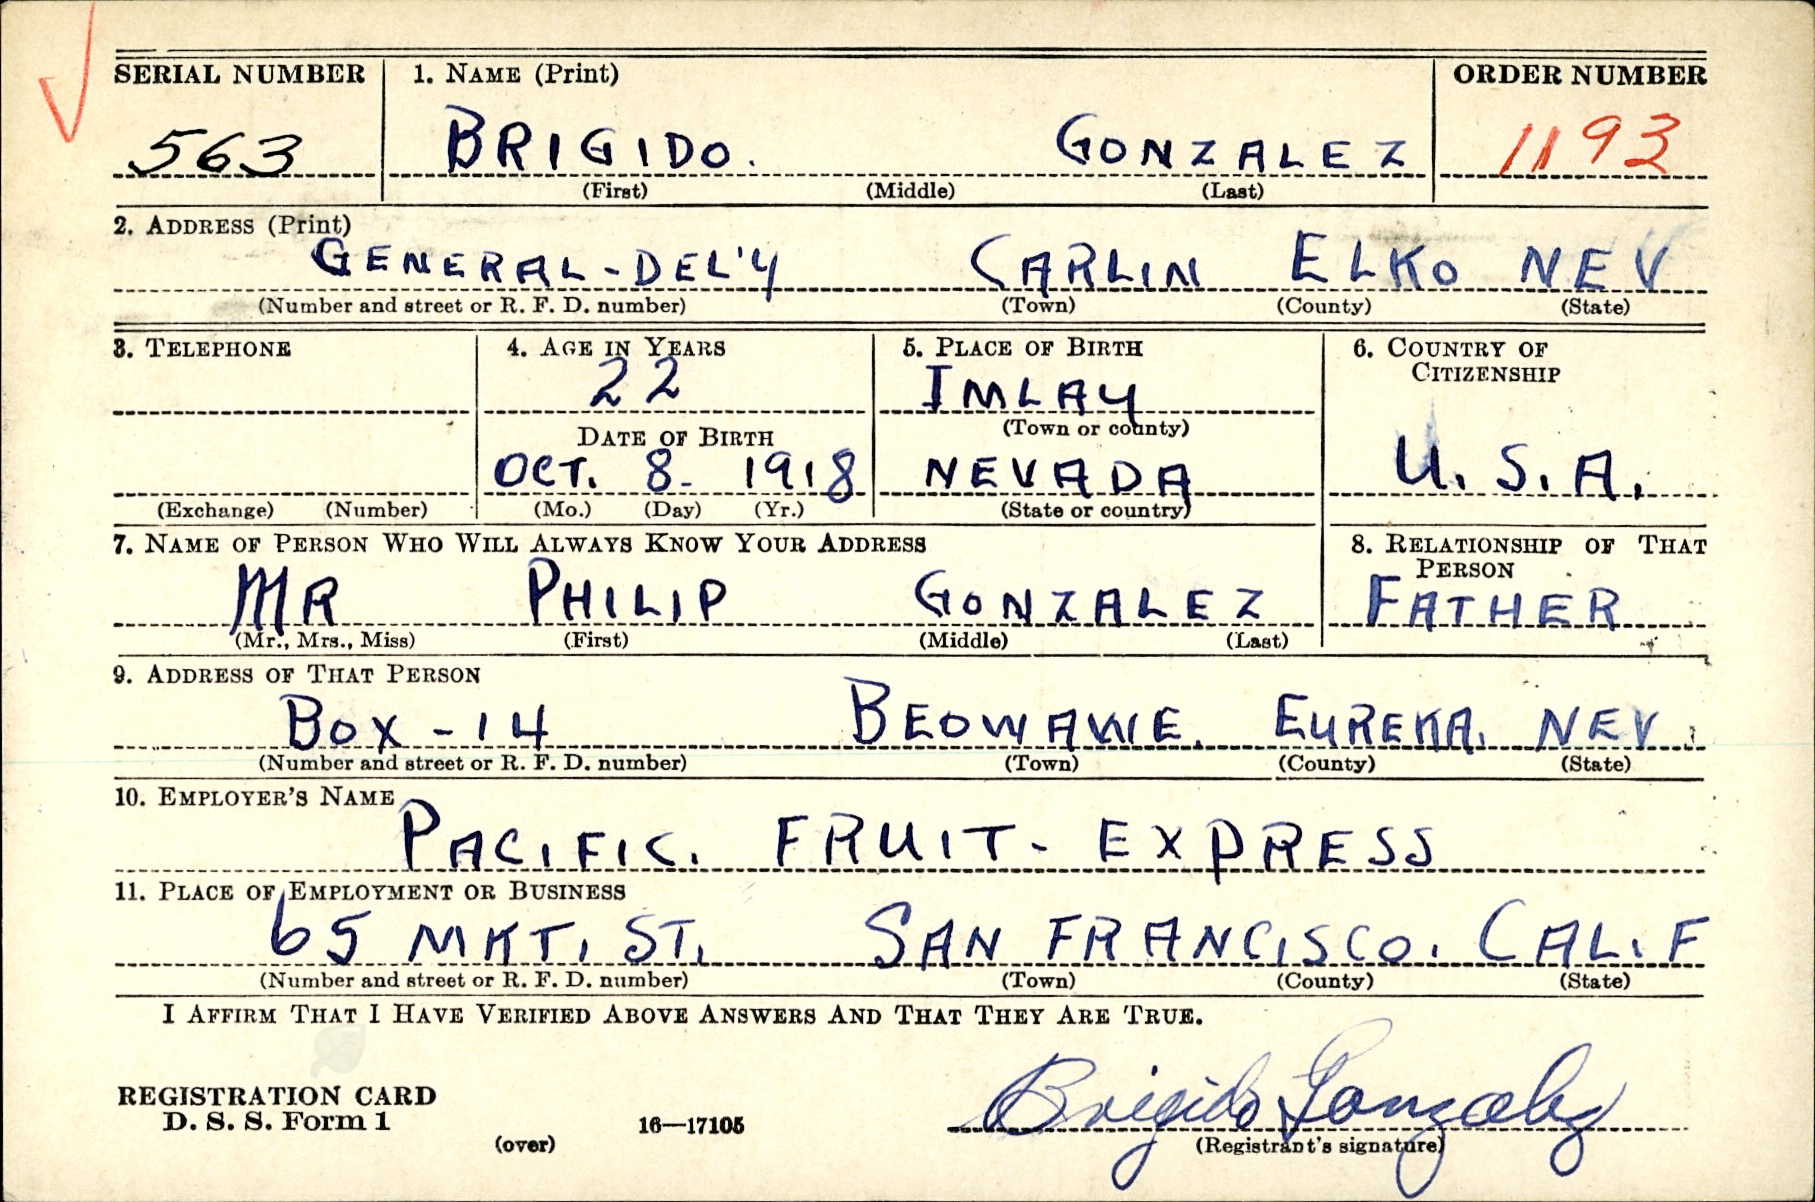 SERIAL NUMBER 1. NAME (Print) ORDER NUMBER
563 BRIGIDO. GONZALEZ 1193
(First) (Middle) (Last)
2. ADDRESS (Print)
GENERAL-DEL'Y CARLIN ELKO NEV
(Number and street or R. F. D. number) (Town) (County) (State)
3. TELEPHONE 4. AGE IN YEARS 5. PLACE OF BIRTH 6. COUNTRY OF
CITIZENSHIP
22 IMLAY
(Town or county)
DATE OF BIRTH
OCT. 8- 1918 NEVADA U.S.A.
(Exchange) (Number) (Mo.) (Day) (Yr.) (State or country)
7. NAME OF PERSON WHO WILL ALWAYS KNOW YOUR ADDRESS 8. RELATIONSHIP OF THAT
PERSON
MR PHILIP GONZALEZ FATHER
(Mr., Mrs., Miss) (First) (Middle) (Last)
9. ADDRESS OF THAT PERSON
BOX-14 BEOWAWE. EUREKA. NEV.
(Number and street or R. F. D. number) (Town) (County) (State)
10. EMPLOYER'S NAME
PACIFIC. FRUIT- EXPRESS
11. PLACE OF EMPLOYMENT OR BUSINESS
65 MKT. ST. SAN FRANCISCO. CALIF
(Number and street or R. F. D. number) (Town) (County) (State)
I AFFIRM THAT I HAVE VERIFIED ABOVE ANSWERS AND THAT THEY ARE TRUE.
REGISTRATION CARD
D. S. S. Form 1
(over) 16—17105 Brigido Gonzalez
(Registrant's signature)